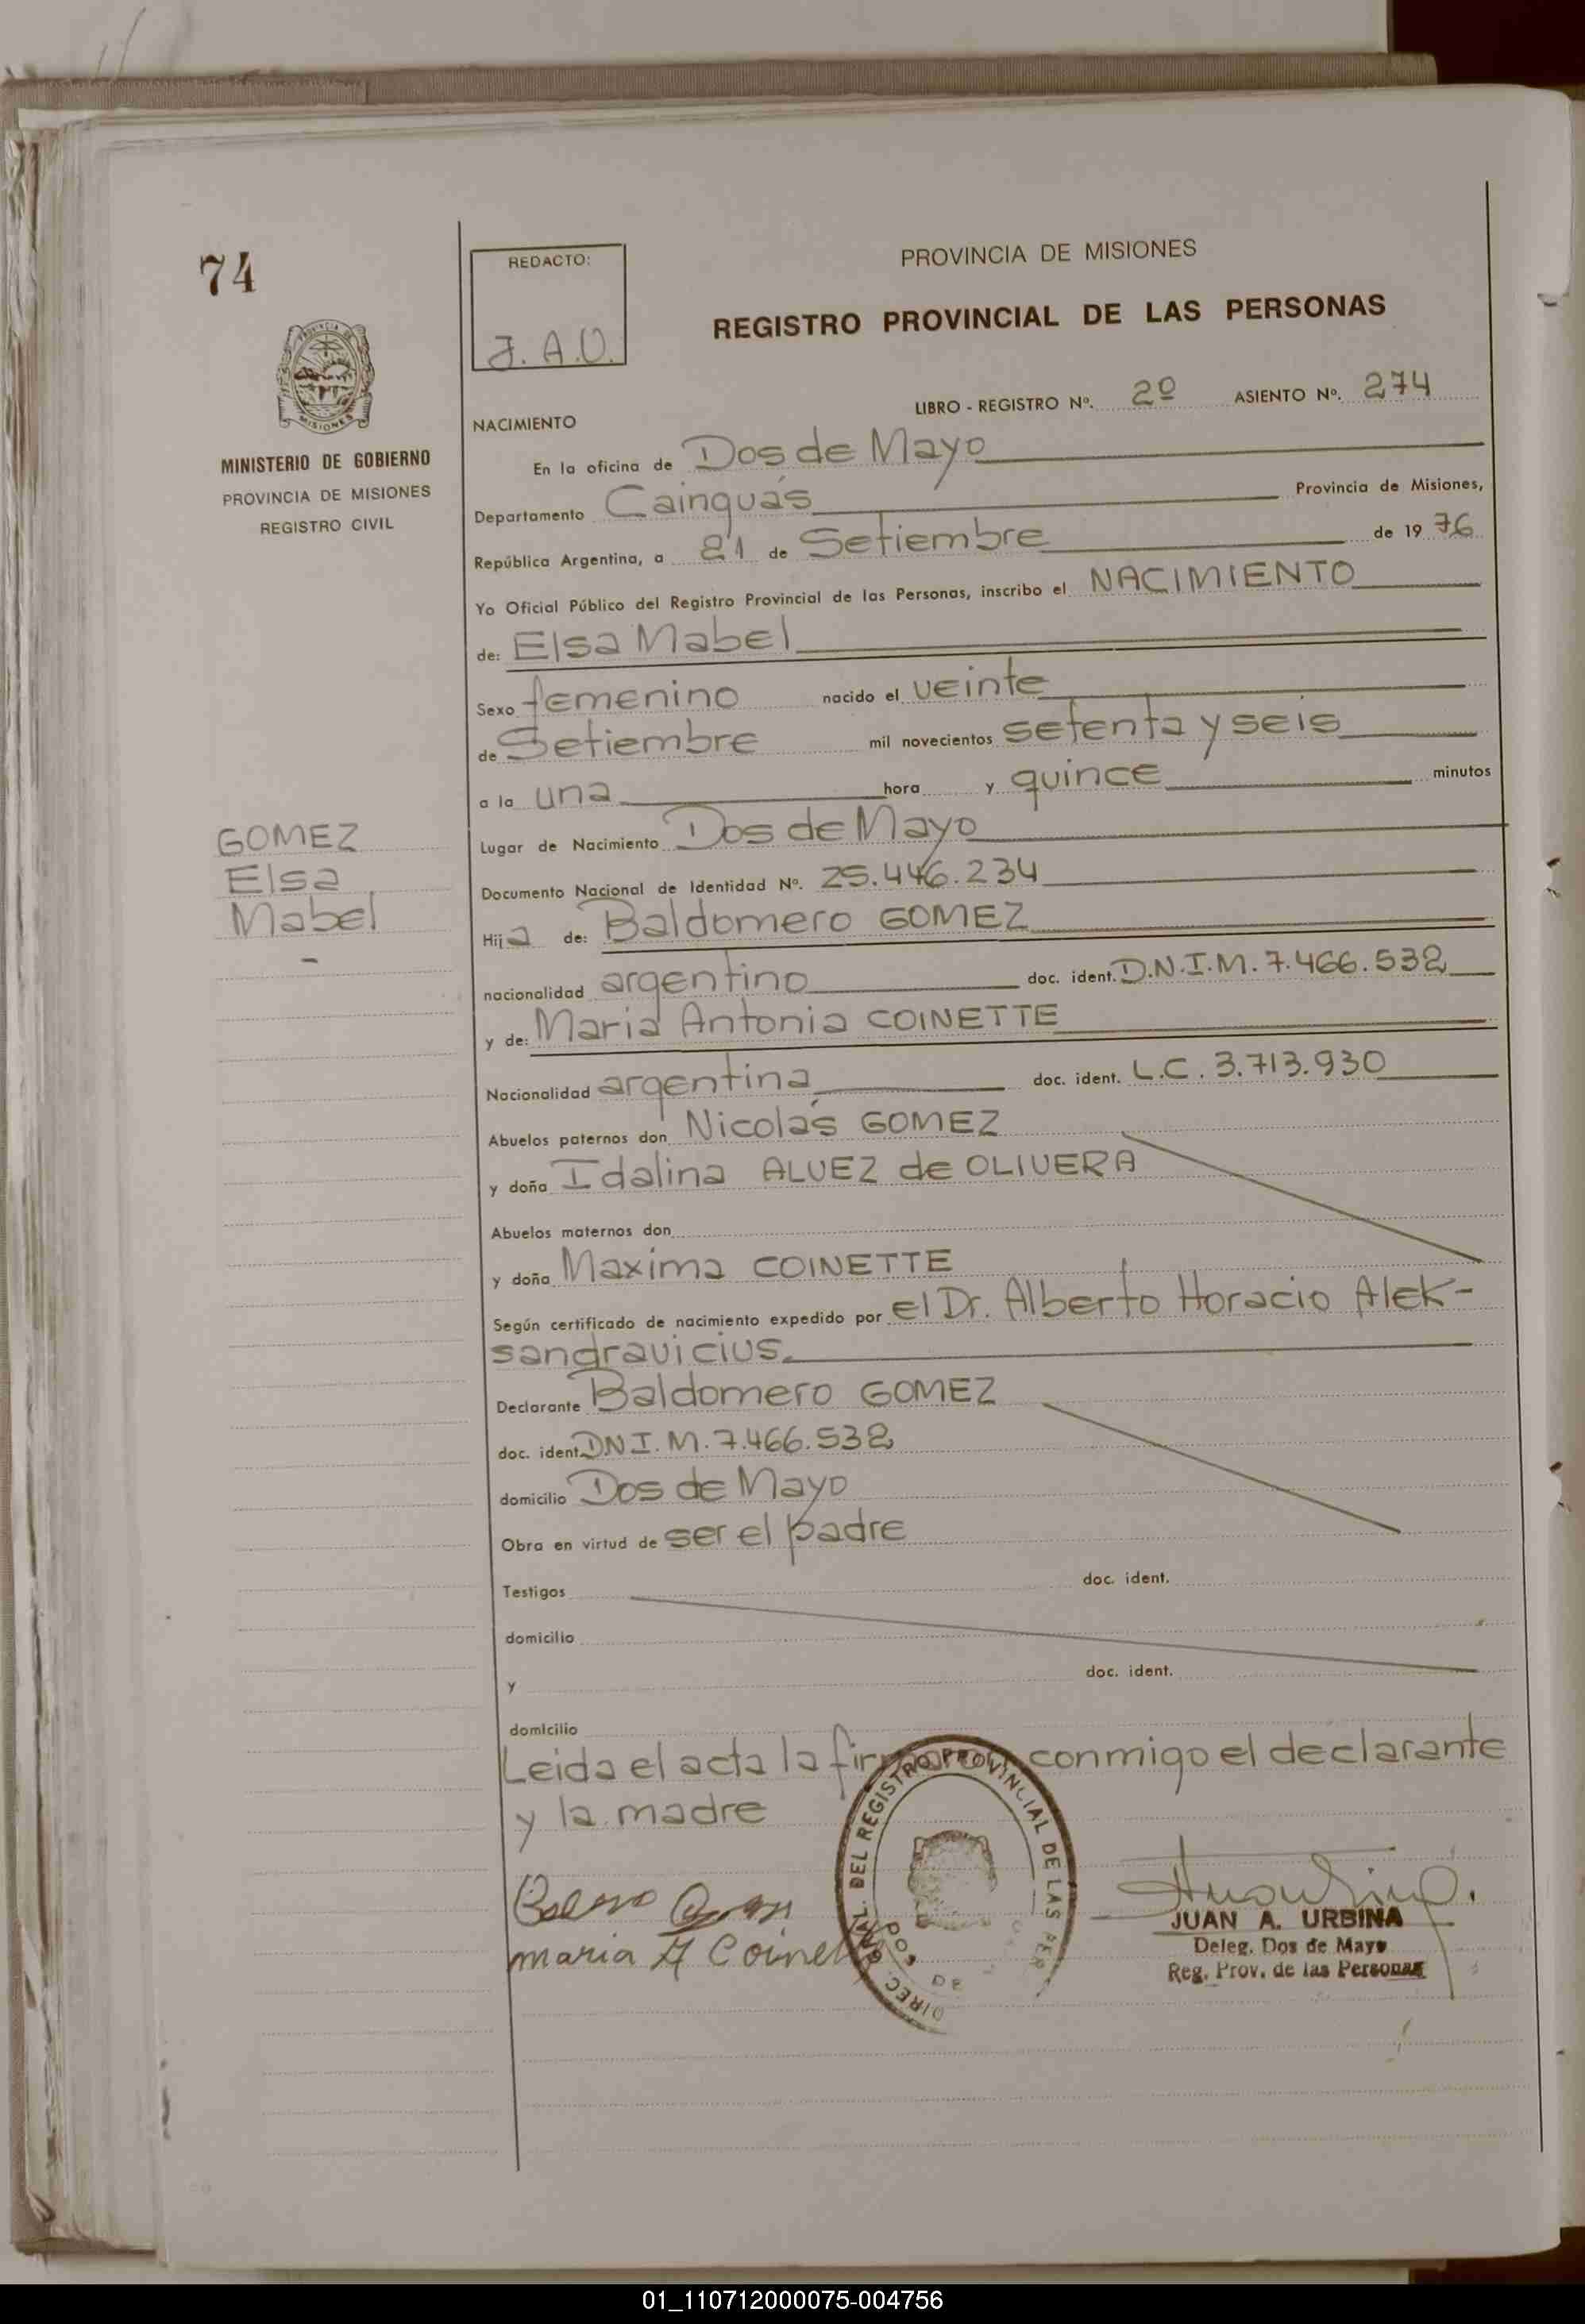 74
REDACTO:
J. A. U.
PROVINCIA DE MISIONES
REGISTRO PROVINCIAL DE LAS PERSONAS
PROVINCIA DE
MISIONES
MINISTERIO DE GOBIERNO
PROVINCIA DE MISIONES
REGISTRO CIVIL
LIBRO - REGISTRO Nº. 2º ASIENTO Nº. 274
NACIMIENTO
En la oficina de Dos de Mayo
Departamento Cainguás Provincia de Misiones,
República Argentina, a 21 de Setiembre de 1976
Yo Oficial Público del Registro Provincial de las Personas, inscribo el NACIMIENTO
de: Elsa Mabel
Sexo femenino nacido el veinte
de Setiembre mil novecientos setenta y seis
a la una hora y quince minutos
Lugar de Nacimiento Dos de Mayo
GOMEZ
Elsa
Mabel
-
Documento Nacional de Identidad Nº. 25.446.234
Hija de: Baldomero GOMEZ
nacionalidad argentino doc. ident. D.N.I.M. 7.466.532
y de: Maria Antonia COINETTE
Nacionalidad argentina doc. ident. L.C. 3.713.930
Abuelos paternos don Nicolás GOMEZ
y doña Idalina ALVEZ de OLIVERA
Abuelos maternos don
y doña Maxima COINETTE
Según certificado de nacimiento expedido por el Dr. Alberto Horacio Alek-
sandravicius.
Declarante Baldomero GOMEZ
doc. ident. D.N.I.M. 7.466.532
domicilio Dos de Mayo
Obra en virtud de ser el padre
Testigos doc. ident.
domicilio
y doc. ident.
domicilio
Leida el acta la conmigo el declarante
y la madre
maria A Coinette
DIREC. GRAL. DEL REGISTRO PROVINCIAL DE LAS PER
DOS DE
JUAN A. URBINA
Deleg. Dos de Mayo
Reg. Prov. de las Personas
01_110712000075-004756